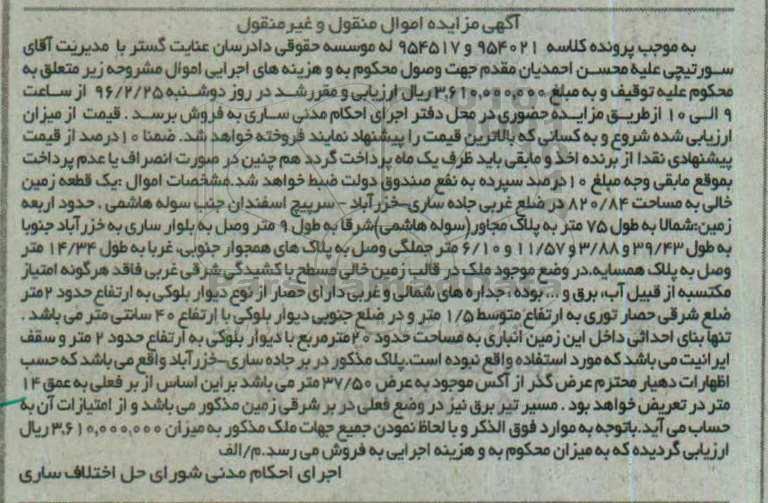 آگهی مزایده اموال منقول و غیرمنقول
به موجب پرونده کلاسه ۹۵۴۰۲۱ و ۹۵۴۵۱۷ له موسسه حقوقی دادرسان عنایت گستر با مدیریت آقای
سورتیچی علیه محسن احمدیان مقدم جهت وصول محکوم به و هزینه های اجرایی اموال مشروحه زیر متعلق به
محکوم علیه توقیف و به مبلغ ۳،۶۱۰،۰۰۰،۰۰۰ ریال ارزیابی و مقررشد در روز دوشنبه ۹۶/۲/۲۵ از ساعت
۹ الی ۱۰ ازطریق مزایده حضوری در محل دفتر اجرای احکام مدنی ساری به فروش برسد . قیمت از میزان
ارزیابی شده شروع و به کسانی که بالاترین قیمت را پیشنهاد نمایند فروخته خواهد شد. ضمنا ۱۰درصد از قیمت
پیشنهادی نقدا از برنده اخذ و مابقی باید ظرف یک ماه پرداخت گردد هم چنین در صورت انصراف یا عدم پرداخت
بموقع مابقی وجه مبلغ ۱۰درصد سپرده به نفع صندوق دولت ضبط خواهد شد.مشخصات اموال :یک قطعه زمین
خالی به مساحت ۸۲۰/۸۴ در ضلع غربی جاده ساری-خزرآباد - سرپیچ اسفندان جنب سوله هاشمی . حدود اربعه
زمین:شمالا به طول ۷۵ متر به پلاک مجاور(سوله هاشمی)شرقا به طول ۹ متر وصل به بلوار ساری به خزرآباد جنوبا
به طول ۳۹/۴۳ و ۳/۸۸ و ۱۱/۵۷ و ۶/۱۰ متر جملگی وصل به پلاک های همجوار جنوبی، غربا به طول ۱۴/۳۴ متر
وصل به پلاک همسایه.در وضع موجود ملک در قالب زمین خالی مسطح با کشیدگی شرقی غربی فاقد هرگونه امتیاز
مکتسبه از قبیل آب، برق و ... بوده ؛ جداره های شمالی و غربی دارای حصار از نوع دیوار بلوکی به ارتفاع حدود ۲متر
ضلع شرقی حصار توری به ارتفاع متوسط ۱/۵ متر و در ضلع جنوبی دیوار بلوکی با ارتفاع ۴۰ سانتی متر می باشد .
تنها بنای احداثی داخل این زمین انباری به مساحت حدود ۲۰مترمربع با دیوار بلوکی به ارتفاع حدود ۲ متر و سقف
ایرانیت می باشد که مورد استفاده واقع نبوده است.پلاک مذکور در بر جاده ساری-خزرآباد واقع می باشد که حسب
اظهارات دهیار محترم عرض گذر از آکس موجود به عرض ۳۷/۵۰ متر می باشد بر این اساس از بر فعلی به عمق ۱۴
متر در تعریض خواهد بود . مسیر تیر برق نیز در وضع فعلی در بر شرقی زمین مذکور می باشد و از امتیازات آن به
حساب می آید.باتوجه به موارد فوق الذکر و با لحاظ نمودن جمیع جهات ملک مذکور به میزان ۳،۶۱۰،۰۰۰،۰۰۰ ریال
ارزیابی گردیده که به میزان محکوم به و هزینه اجرایی به فروش می رسد.م/الف
اجرای احکام مدنی شورای حل اختلاف ساری